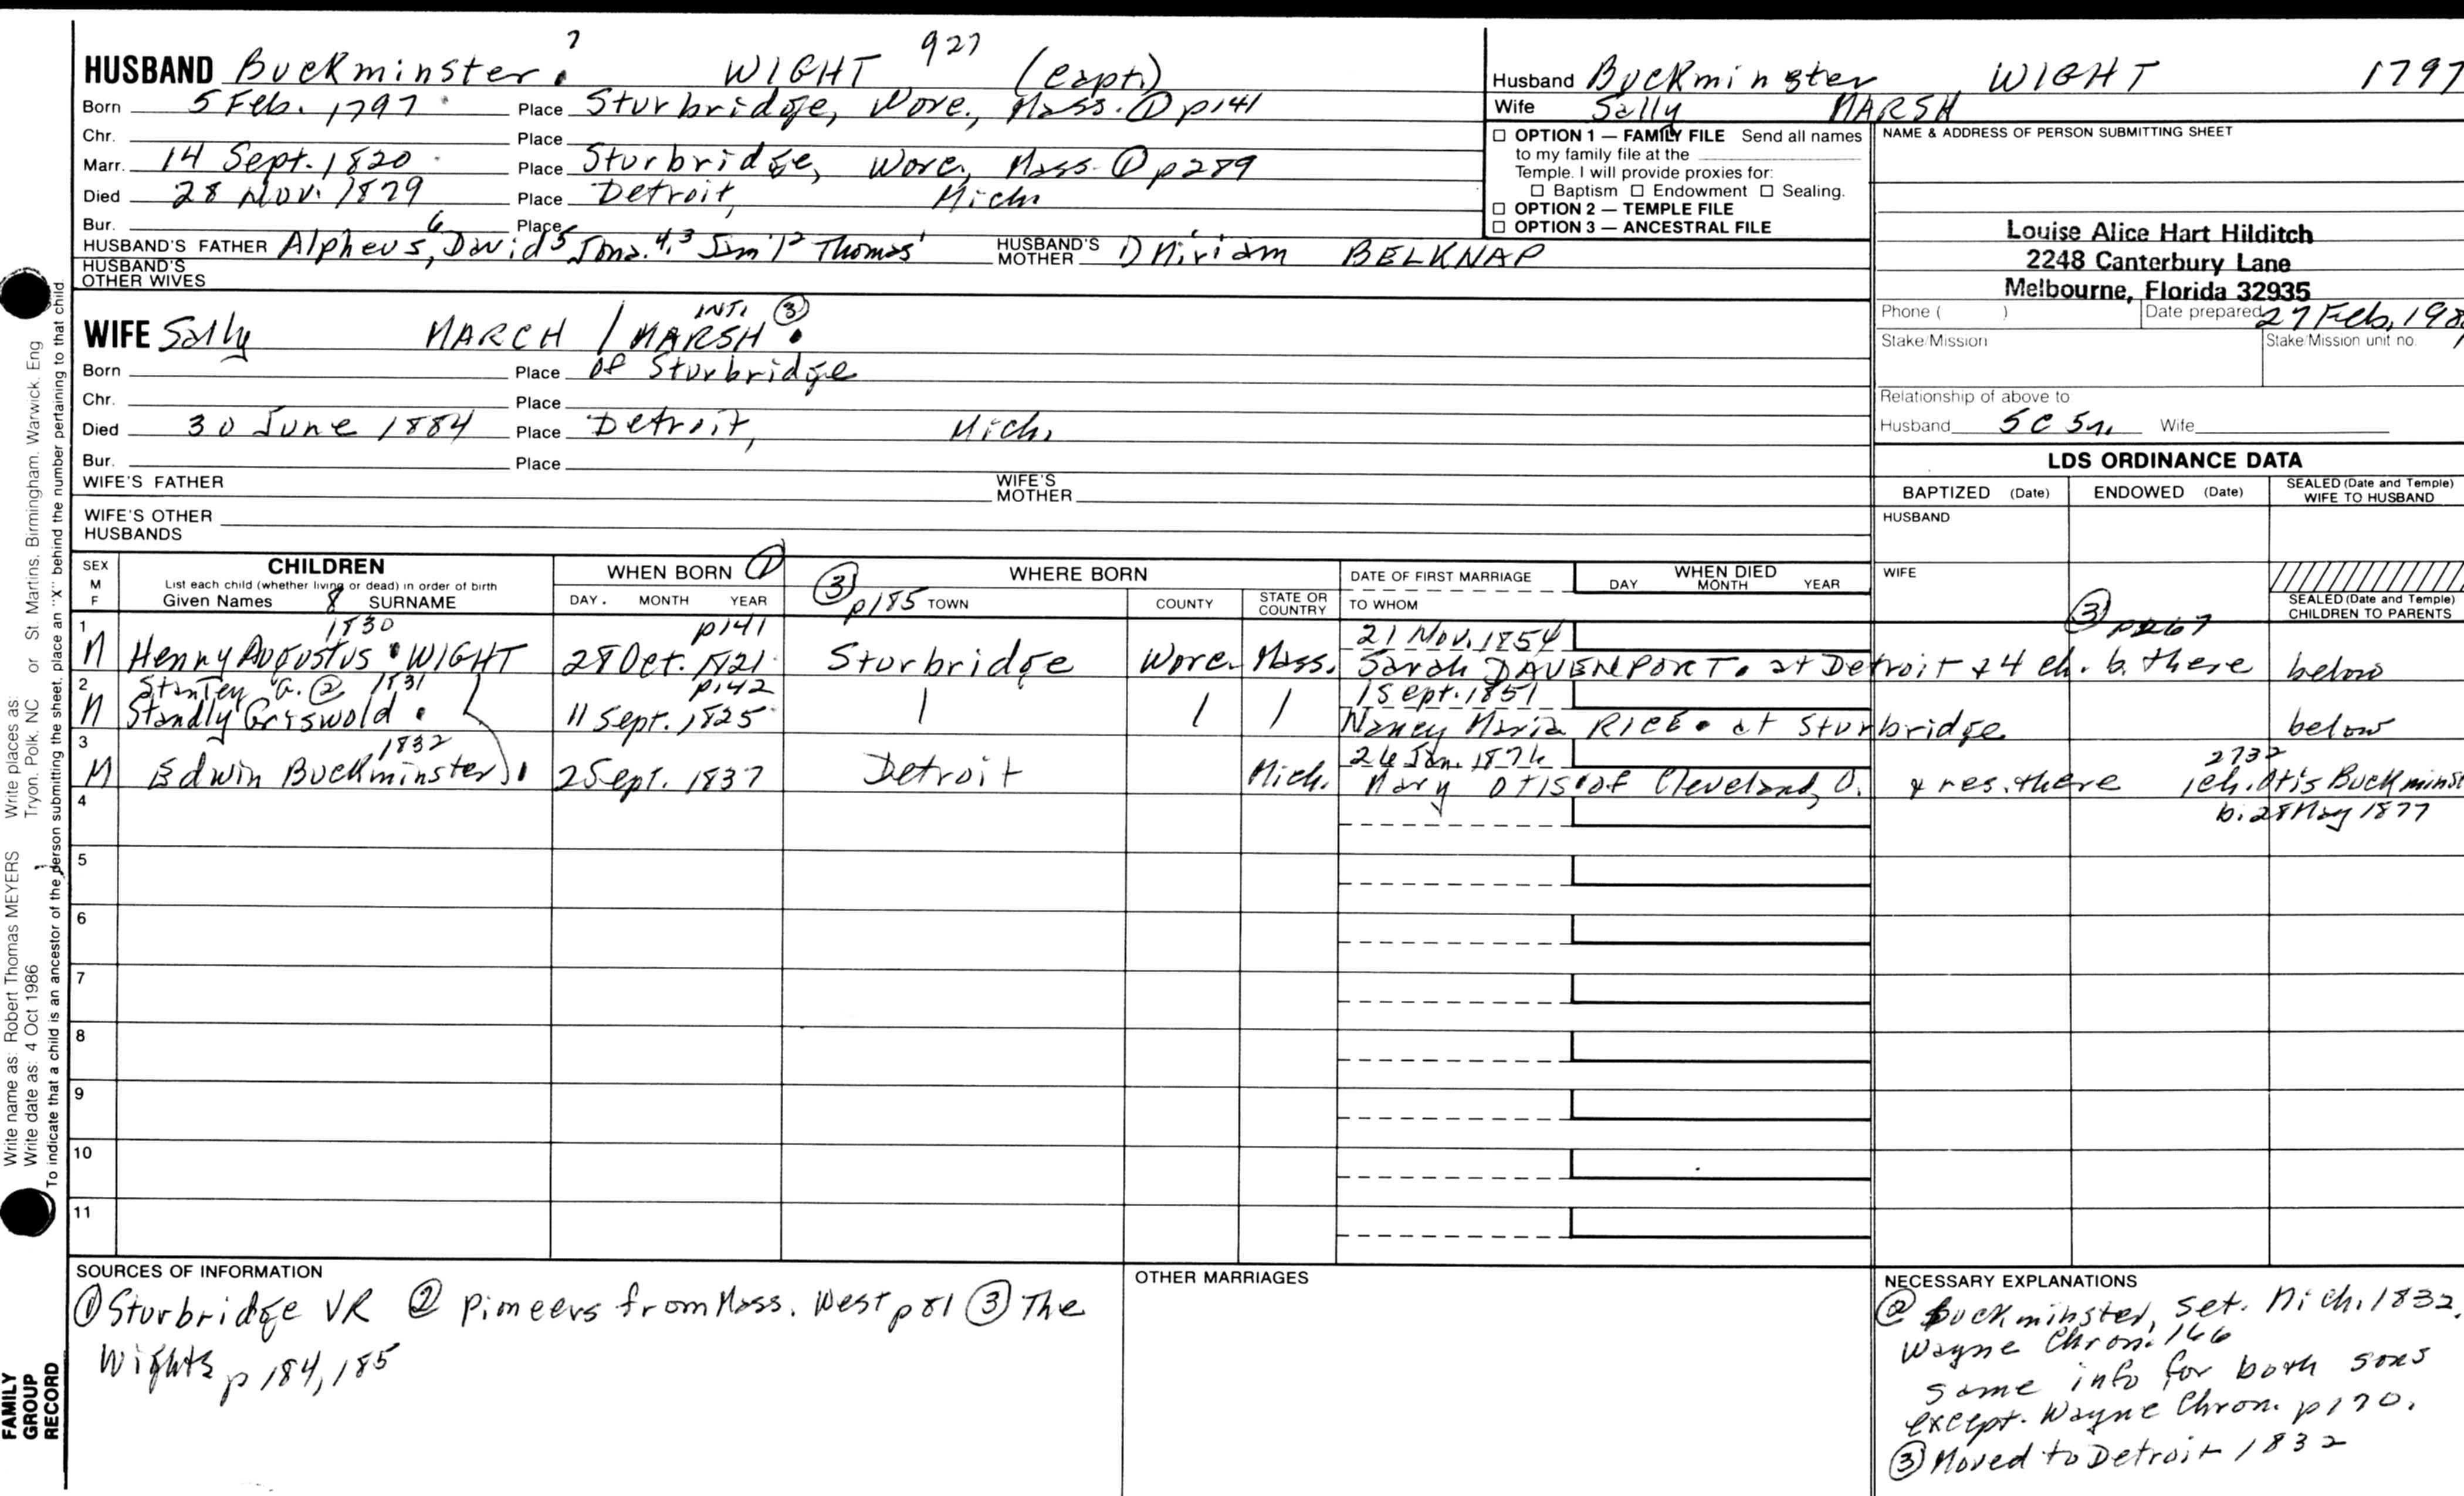 HUSBAND Buckminster 7 WIGHT 927 (Capt.)
Born 5 Feb. 1797 Place Sturbridge, Worc., Mass. ① p141
Chr. Place
Marr. 14 Sept. 1820 Place Sturbridge, Worc., Mass. ① p289
Died 28 Nov. 1879 Place Detroit, Mich.
Bur. Place
HUSBAND'S FATHER Alpheus 6, David 5 Jona. 4,3 Sam'l 2 Thomas 1 HUSBAND'S MOTHER 1) Miriam BELKNAP
HUSBAND'S OTHER WIVES
WIFE Sally MARCH / MARSH INT. ③
Born Place of Sturbridge
Chr. Place
Died 30 June 1884 Place Detroit, Mich.
Bur. Place
WIFE'S FATHER WIFE'S MOTHER
WIFE'S OTHER HUSBANDS
Husband Buckminster WIGHT 1797
Wife Sally MARSH
☐ OPTION 1 — FAMILY FILE Send all names
to my family file at the
Temple. I will provide proxies for:
☐ Baptism ☐ Endowment ☐ Sealing.
☐ OPTION 2 — TEMPLE FILE
☐ OPTION 3 — ANCESTRAL FILE
NAME & ADDRESS OF PERSON SUBMITTING SHEET
Louise Alice Hart Hilditch
2248 Canterbury Lane
Melbourne, Florida 32935
Phone ( ) Date prepared 27 Feb, 198
Stake/Mission Stake/Mission unit no.
Relationship of above to
Husband 5C 5n. Wife
LDS ORDINANCE DATA
BAPTIZED (Date) ENDOWED (Date) SEALED (Date and Temple) WIFE TO HUSBAND
HUSBAND
WIFE
SEALED (Date and Temple) CHILDREN TO PARENTS
③ p267
SEX M F CHILDREN WHEN BORN ① ③ p185 WHERE BORN DATE OF FIRST MARRIAGE WHEN DIED
List each child (whether living or dead) in order of birth
Given Names 8 SURNAME DAY. MONTH YEAR TOWN COUNTY STATE OR COUNTRY TO WHOM DAY MONTH YEAR
1 1830 p141 21 Nov. 1854
M Henry Augustus WIGHT 28 Oct. 1821 Sturbridge Worc. Mass. Sarah DAVENPORT. at Detroit + 4 ch. b. there below
2 Stanley G. ② 1831 p142 1 Sept. 1851
M Standly Griswold 11 Sept. 1825 Nancy Maria RICE. at Sturbridge below
3 1832 26 Jan. 1876 2732
M Edwin Buckminster 2 Sept. 1837 Detroit Mich. Mary OTIS of Cleveland, O. + res. there 1 ch. Otis Buckminst
b. 28 May 1877
4
5
6
7
8
9
10
11
SOURCES OF INFORMATION
① Sturbridge VR ② Pioneers from Mass. West p81 ③ The
Wights p 184, 185
OTHER MARRIAGES
NECESSARY EXPLANATIONS
② Buckminster, set. Mich. 1832.
Wayne Chron. 166
same info for both sons
except. Wayne Chron. p170.
③ Moved to Detroit 1832
Write name as: Robert Thomas MEYERS Write places as: Tryon, Polk, NC or St. Martins, Birmingham, Warwick, Eng
Write date as: 4 Oct 1986
To indicate that a child is an ancestor of the person submitting the sheet, place an "X" behind the number pertaining to that child
FAMILY
GROUP
RECORD